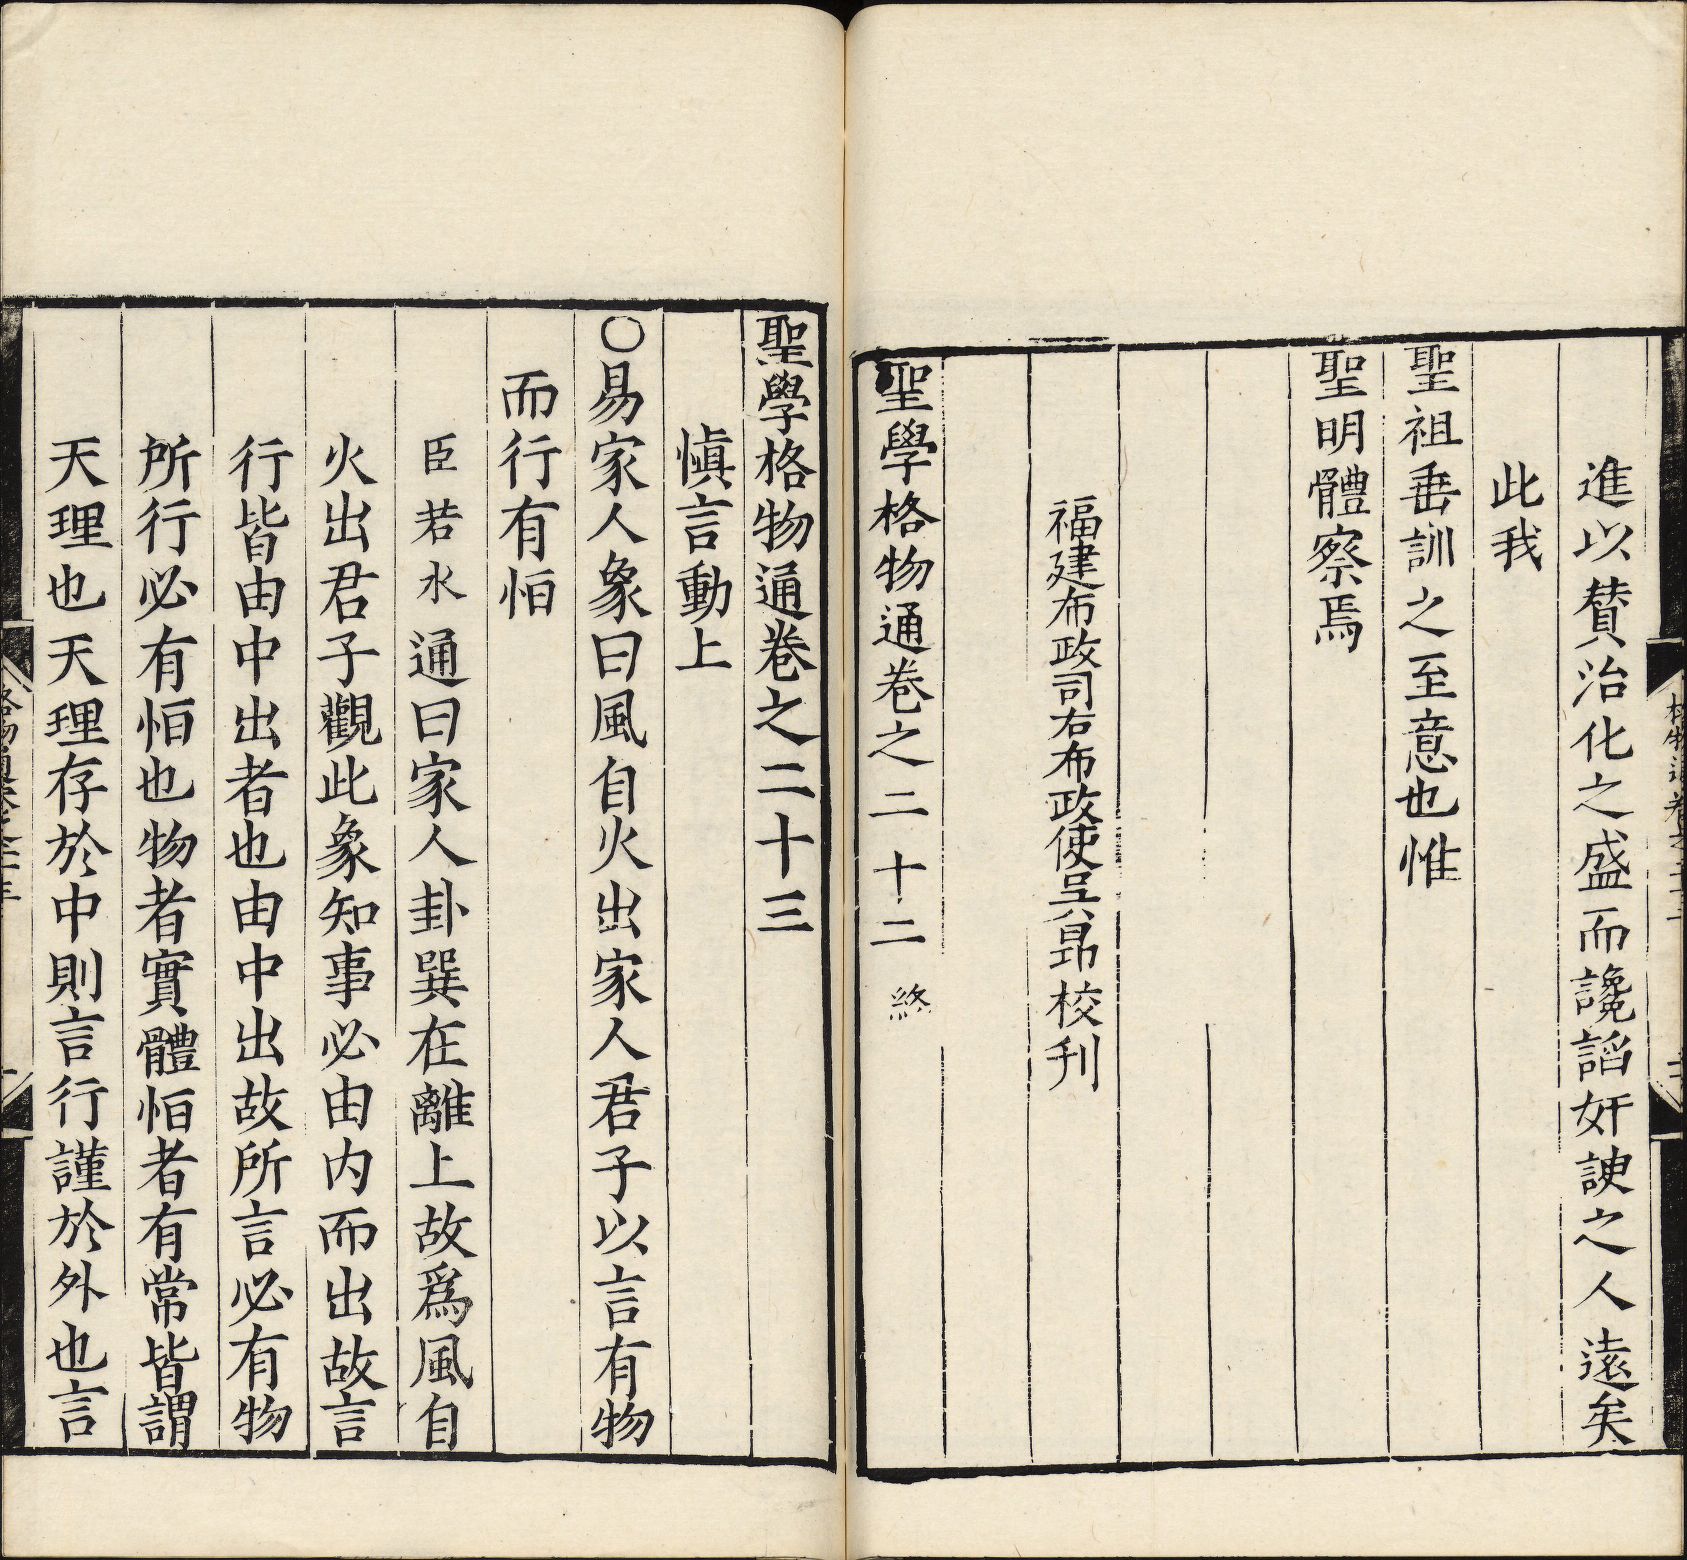 進以賛治化之盛而讒謟奸諛之人遠矣
此我
聖祖垂訓之至意也惟
聖明體察焉
福建布政司右布政使吳昂校刊
聖學格物通卷之二十二 終
聖學格物通卷之二十三
愼言動上
○易家人象曰風自火出家人君子以言有物
而行有恒
臣若水通曰家人卦巽在離上故爲風自
火出君子觀此象知事必由内而出故言
行皆由中出者也由中出故所言必有物
所行必有恒也物者實體恒者有常皆謂
天理也天理存於中則言行謹於外也言